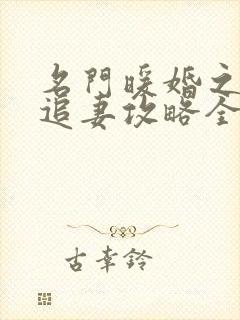 名門暖婚之
追妻攻略全
古幸鈴